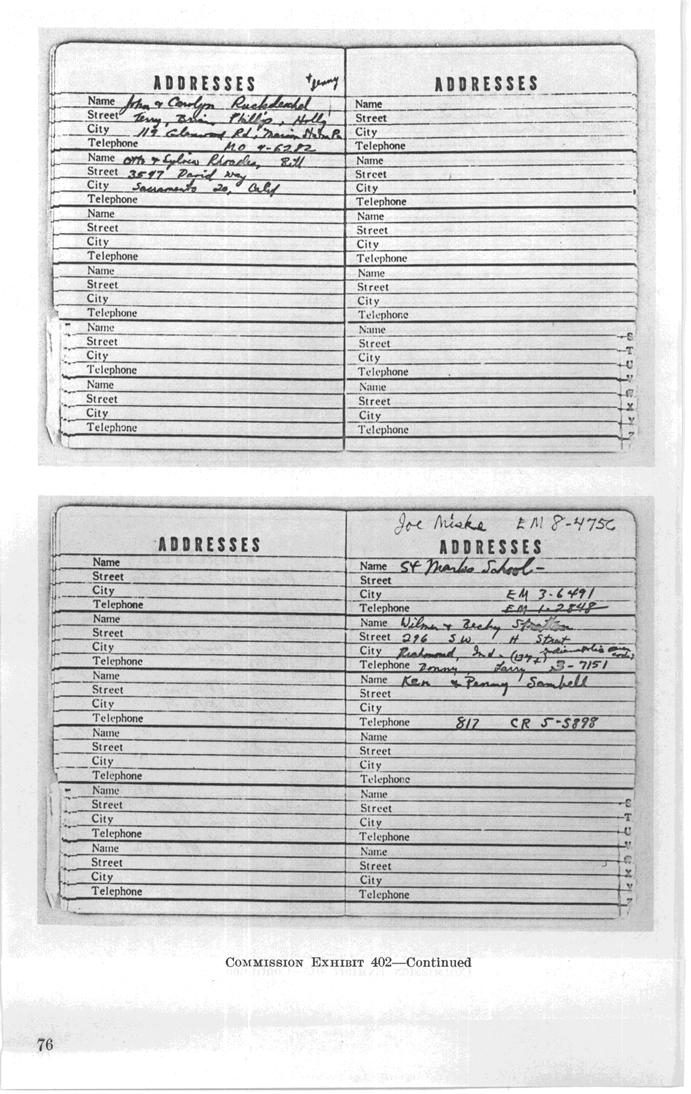 ADDRESSES + Jenny
Name John & Carolyn Ruckdeschel
Street Terry, Brian, Phillip, Holly
City 119 Glenwood Rd,
Telephone MO 4-6282
Name Otto & Sylvia Rhoades, Bill
Street 3547 David Way
City Sacramento 20, Calif
Telephone
Name
Street
City
Telephone
Name
Street
City
Telephone
Name
Street
City
Telephone
Name
Street
City
Telephone
ADDRESSES
Name
Street
City
Telephone
Name
Street
City
Telephone
Name
Street
City
Telephone
Name
Street
City
Telephone
Name
Street
City
Telephone
Name
Street
City
Telephone
ADDRESSES
Name
Street
City
Telephone
Name
Street
City
Telephone
Name
Street
City
Telephone
Name
Street
City
Telephone
Name
Street
City
Telephone
Name
Street
City
Telephone
Joe Miske EM 8-4756
ADDRESSES
Name St Marks School-
Street
City EM 3-6491
Telephone EM 1-2848
Name Wilmer & Becky Stratton
Street 296 S.W. H Street
City Richmond, Ind.
Telephone Donny Larry 3-7151
Name Ken & Penny Sambell
Street
City
Telephone 817 CR 5-5898
Name
Street
City
Telephone
Name
Street
City
Telephone
Name
Street
City
Telephone
COMMISSION EXHIBIT 402—Continued
76